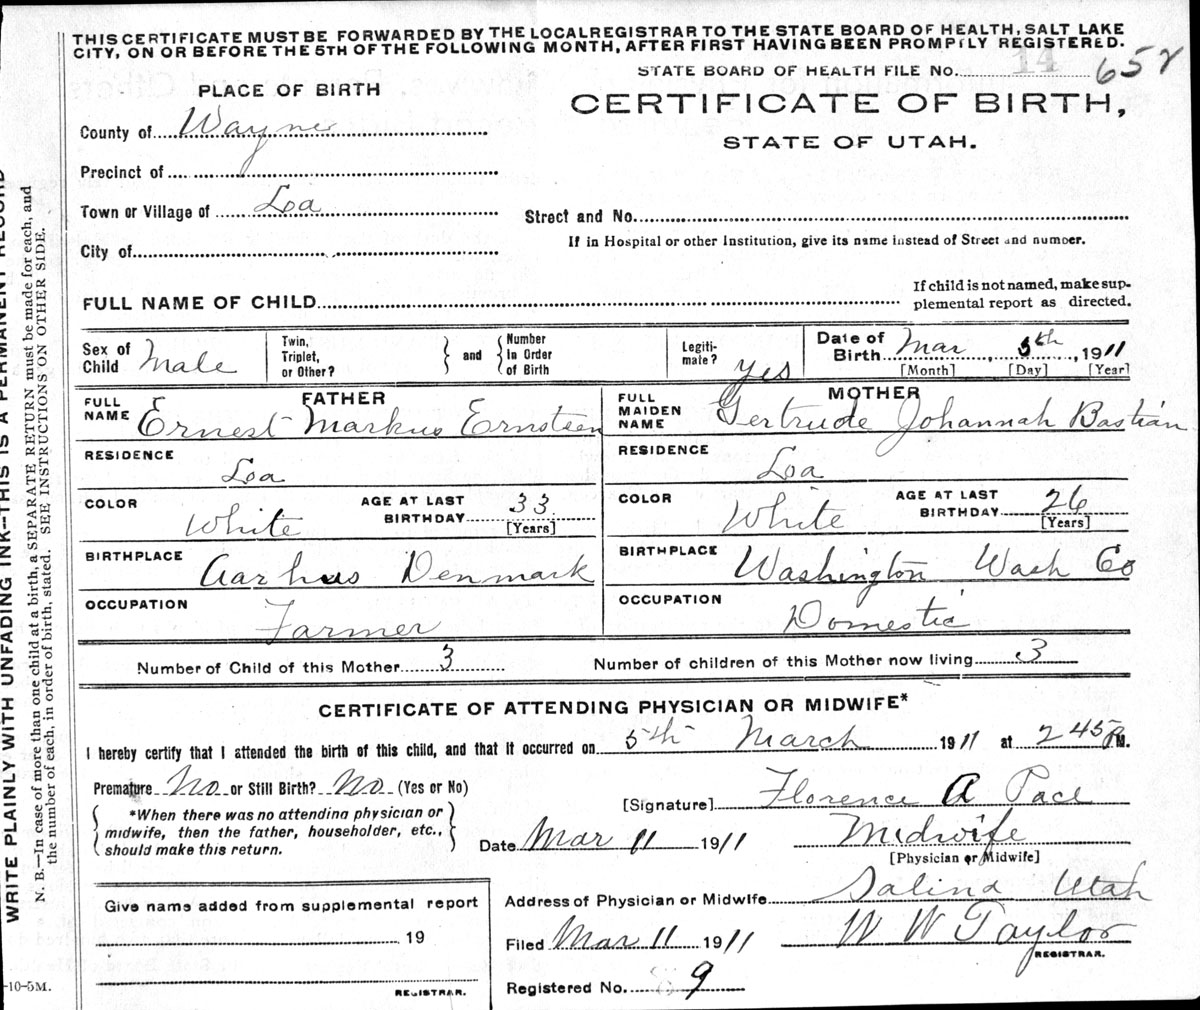 THIS CERTIFICATE MUST BE FORWARDED BY THE LOCAL REGISTRAR TO THE STATE BOARD OF HEALTH, SALT LAKE
CITY, ON OR BEFORE THE 5TH OF THE FOLLOWING MONTH, AFTER FIRST HAVING BEEN PROMPTLY REGISTERED.
STATE BOARD OF HEALTH FILE NO. 14 652
PLACE OF BIRTH
CERTIFICATE OF BIRTH,
STATE OF UTAH.
County of Wayne
Precinct of
Town or Village of Loa
Street and No.
City of
If in Hospital or other Institution, give its name instead of Street and number.
FULL NAME OF CHILD
If child is not named, make sup-
plemental report as directed.
Sex of Child Male
Twin, Triplet, or Other?
and
Number In Order of Birth
Legiti-mate? yes
Date of Birth Mar 5th, 1911
[Month] [Day] [Year]
FATHER
FULL NAME Ernest Markus Ernstsen
MOTHER
FULL MAIDEN NAME Gertrude Johannah Bastian
RESIDENCE Loa
RESIDENCE Loa
COLOR White AGE AT LAST BIRTHDAY 33 [Years]
COLOR White AGE AT LAST BIRTHDAY 26 [Years]
BIRTHPLACE Aarhus Denmark
BIRTHPLACE Washington Wash Co
OCCUPATION Farmer
OCCUPATION Domestic
Number of Child of this Mother 3 Number of children of this Mother now living 3
CERTIFICATE OF ATTENDING PHYSICIAN OR MIDWIFE*
I hereby certify that I attended the birth of this child, and that it occurred on 5th March 1911 at 2 45 P.M.
Premature No or Still Birth? No. (Yes or No)
[Signature] Florence A Pace
*When there was no attending physician or
midwife, then the father, householder, etc.,
should make this return.
Date Mar 11 1911 Midwife
[Physician or Midwife]
Address of Physician or Midwife Salina Utah
Give name added from supplemental report
19
REGISTRAR.
Filed Mar 11 1911 W W Taylor
REGISTRAR.
Registered No. 9
-10-5M.
WRITE PLAINLY WITH UNFADING INK--THIS IS A PERMANENT RECORD
N. B.—In case of more than one child at a birth, a SEPARATE RETURN must be made for each, and
the number of each, in order of birth, stated. SEE INSTRUCTIONS ON OTHER SIDE.